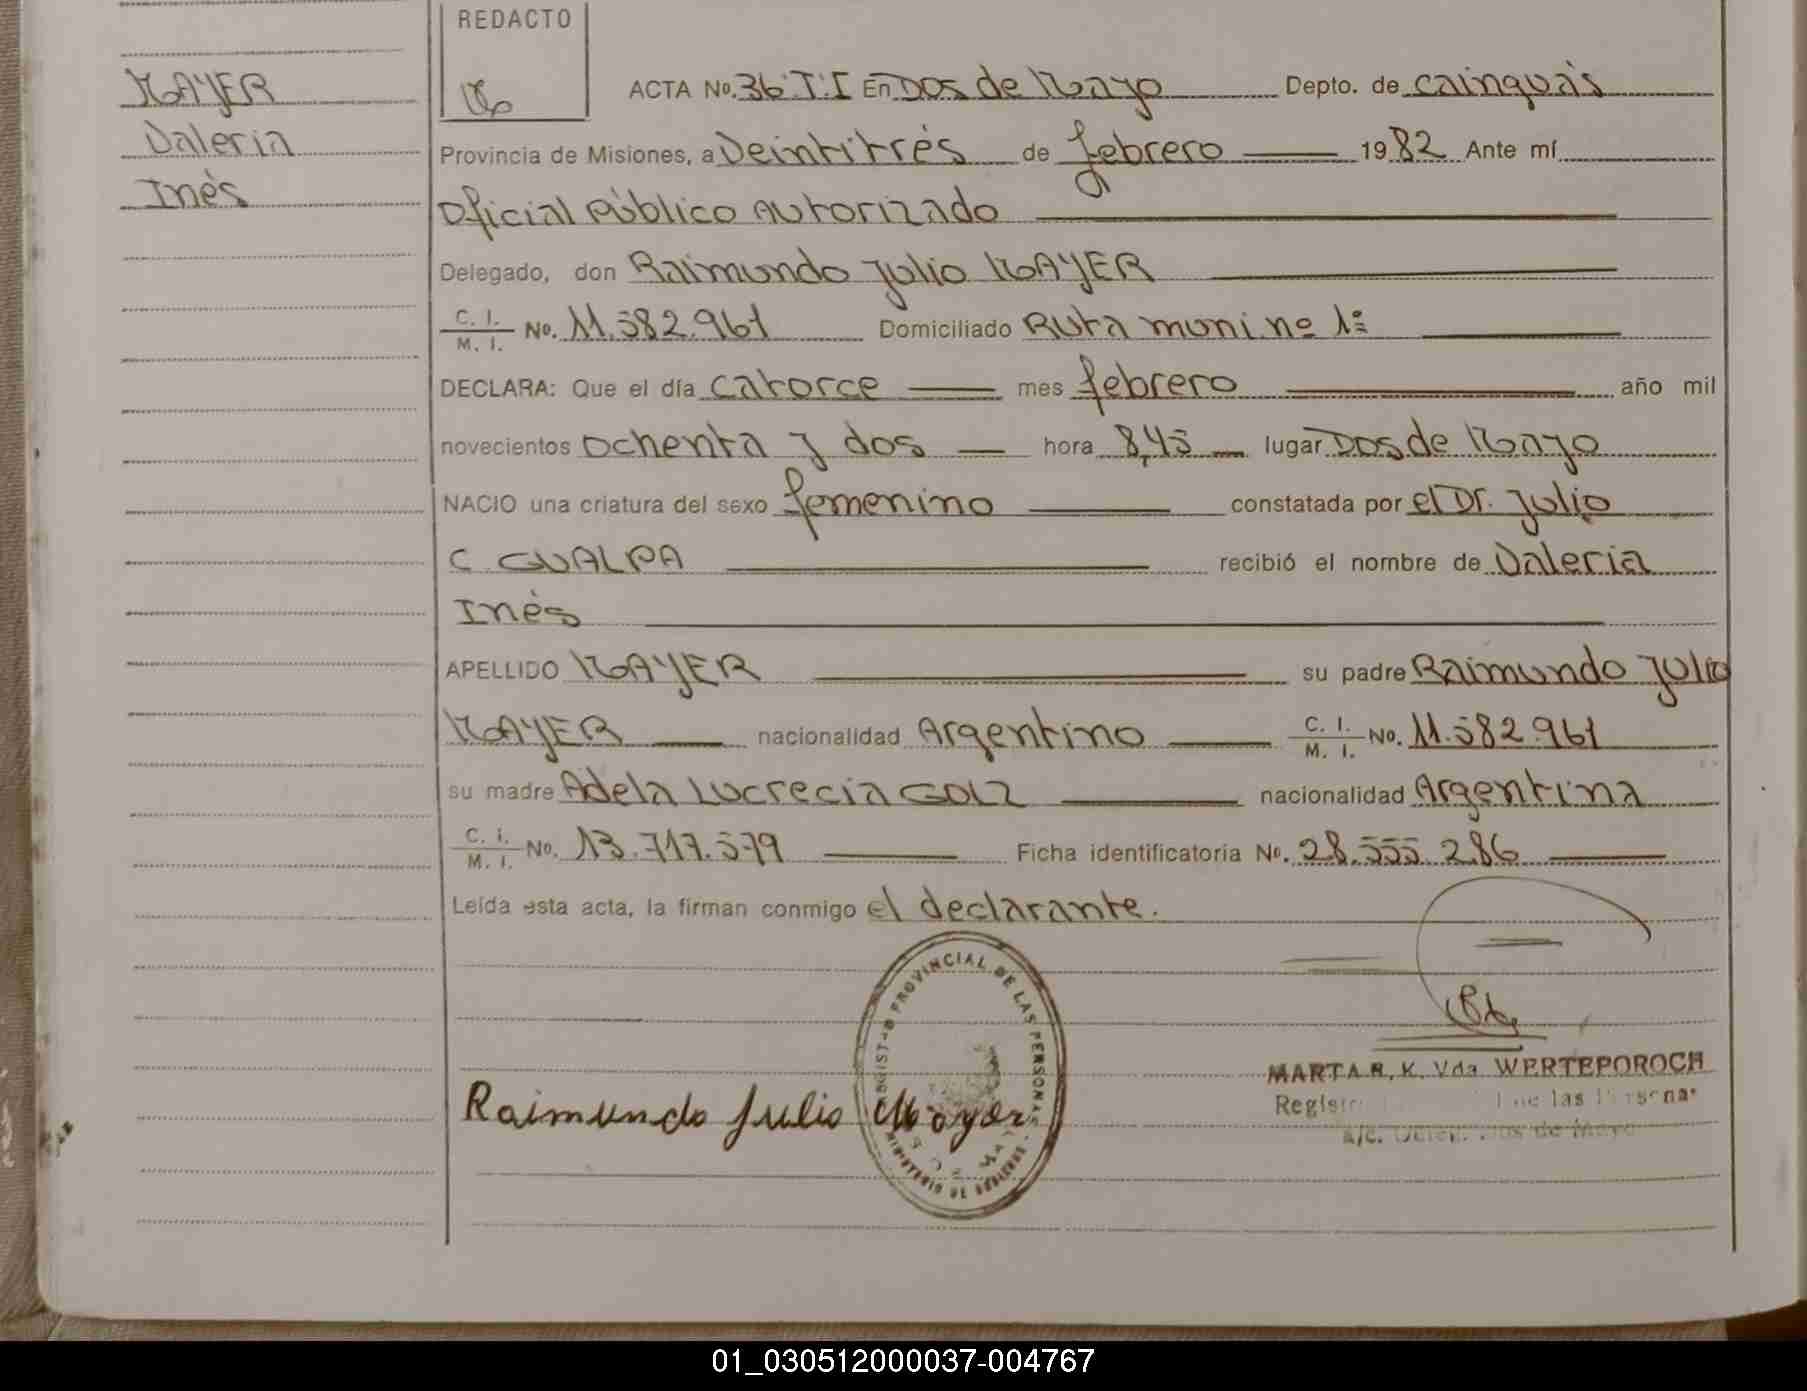 REDACTO
MAYER
Valeria
Inés
ACTA No. 36 T: I En Dos de Mayo Depto. de Cainguás
Provincia de Misiones, a Veintitrés de febrero 1982 Ante mí
Oficial Público Autorizado
Delegado, don Raimundo Julio MAYER
C. I. / M. I. No. 11.582.961 Domiciliado Ruta muni. nº 1º
DECLARA: Que el día catorce mes febrero año mil
novecientos ochenta y dos hora 8,45 lugar Dos de Mayo
NACIO una criatura del sexo femenino constatada por el Dr. Julio
C. GUALPA recibió el nombre de Valeria
Inés
APELLIDO MAYER su padre Raimundo Julio
MAYER nacionalidad Argentino C. I. / M. I. No. 11.582.961
su madre Adela Lucrecia GOLZ nacionalidad Argentina
C. I. / M. I. No. 13.717.579 Ficha identificatoria No. 28.555.286
Leída esta acta, la firman conmigo el declarante.
PROVINCIAL DE LAS PERSONAS
Raimundo Julio Mayer
MARTA R. K. Vda. WERTEPOROCH
a/c. Deleg. Dos de Mayo
01_030512000037-004767